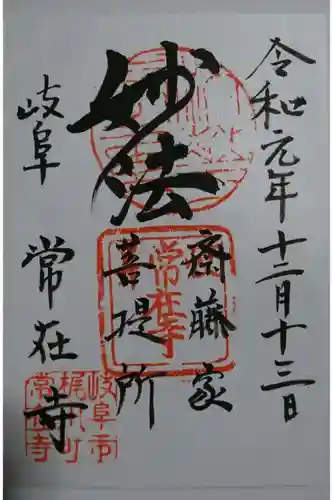 令和元年十二月十三日
妙法
斎藤家
菩提所
岐阜
常在寺
常在寺
岐阜市
梶川町
常在寺